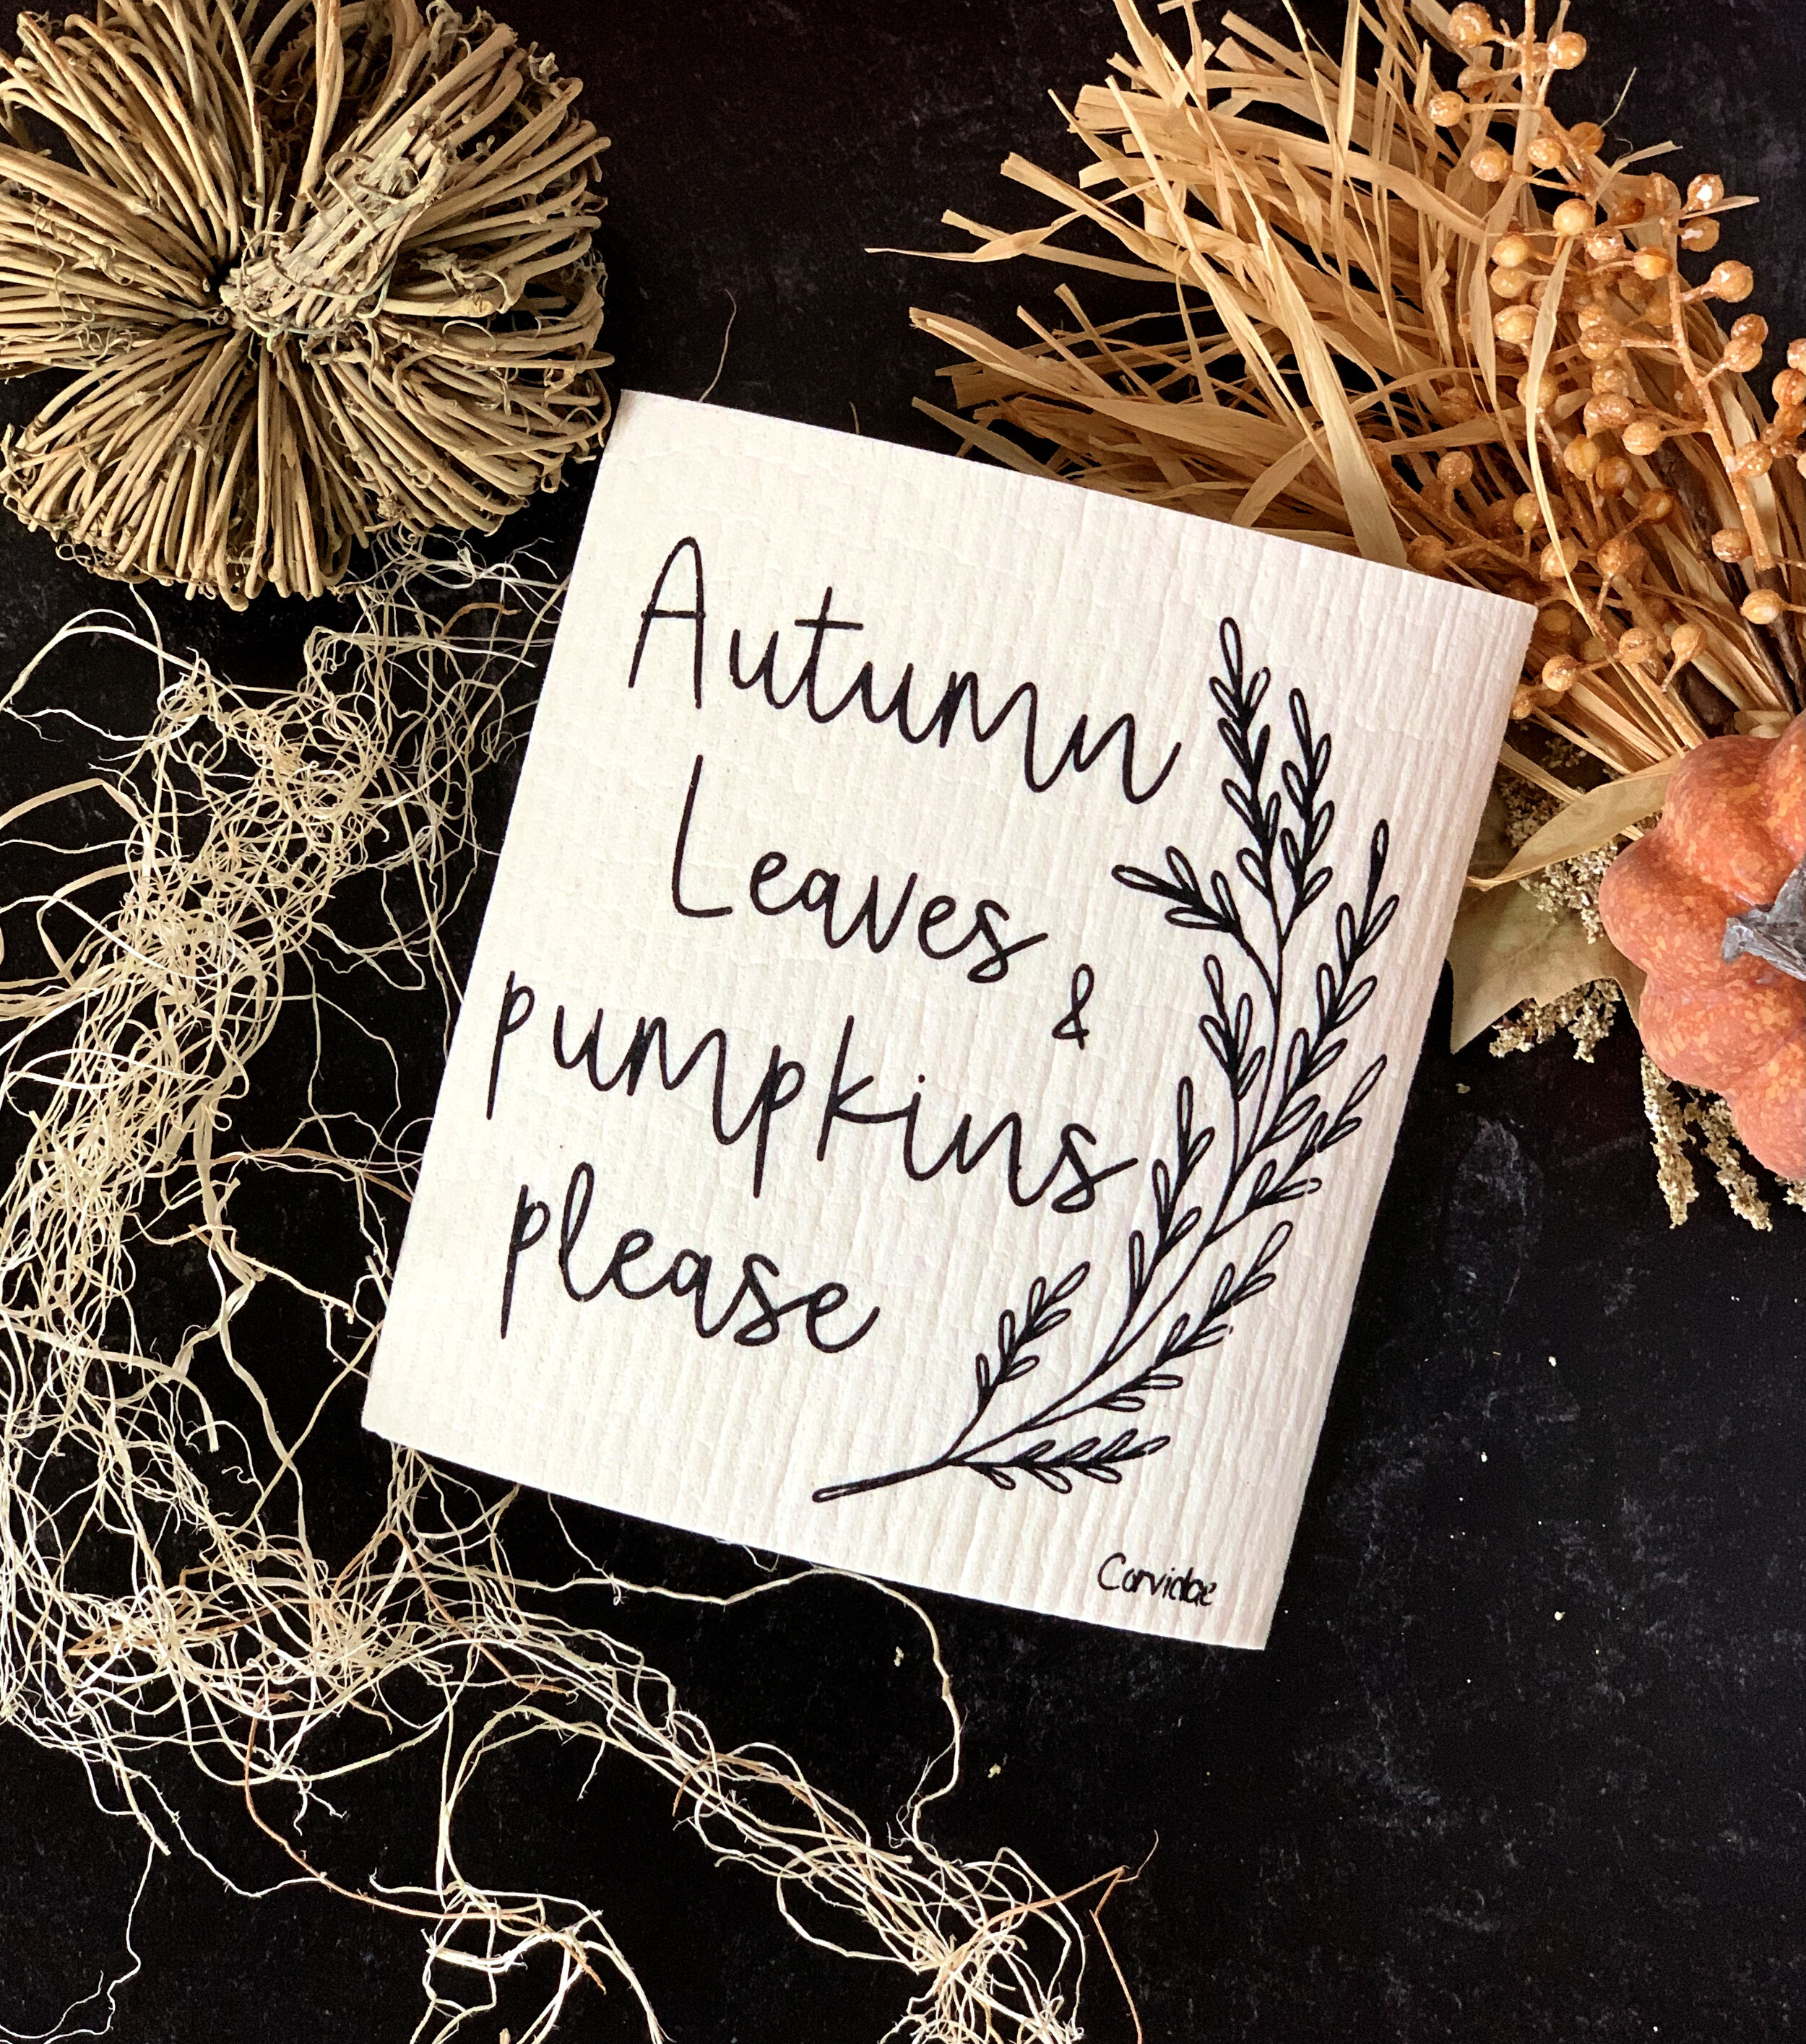 Autumn
Leaves &
pumpkins
please
Corvidae